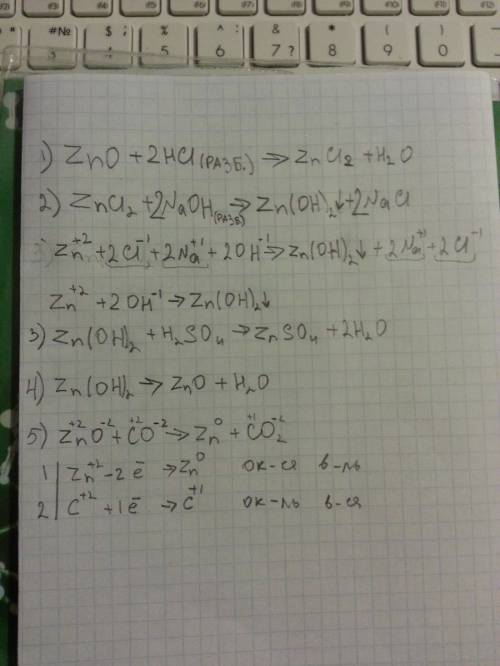 1) ZnO + 2HCl (РАЗБ.) ⇒ ZnCl₂ + H₂O
2) ZnCl₂ + 2NaOH (РАЗБ) ⇒ Zn(OH)₂↓ + 2NaCl
Zn⁺² + 2Cl⁻¹ + 2Na⁺¹ + 2OH⁻¹ ⇒ Zn(OH)₂↓ + 2Na⁺¹ + 2Cl⁻¹
Zn⁺² + 2OH⁻¹ → Zn(OH)₂↓
3) Zn(OH)₂ + H₂SO₄ → ZnSO₄ + 2H₂O
4) Zn(OH)₂ → ZnO + H₂O
5) Zn⁺²O⁻² + C⁺²O⁻² → Zn⁰ + C⁺¹O₂⁻²
1 | Zn⁺² - 2ē → Zn⁰ ок-ся в-ль
2 | C⁺² + 1ē → C⁺¹ ок-ль в-ся